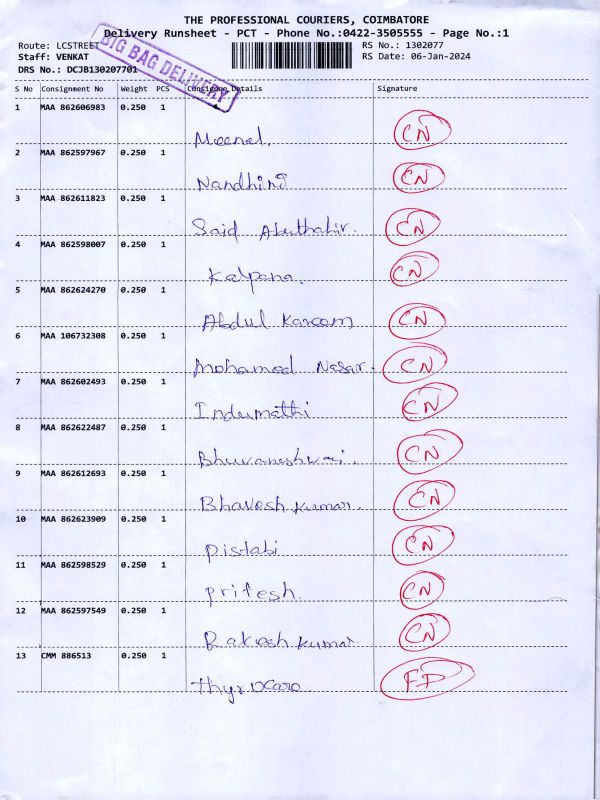 THE PROFESSIONAL COURIERS, COIMBATORE
Delivery Runsheet - PCT - Phone No.:0422-3505555 - Page No.:1
Route: LCSTREET
RS No.: 1302077
Staff: VENKAT
RS Date: 06-Jan-2024
DRS No.: DCJB130207701
BIG BAG DELIVERY
S No Consignment No Weight PCS Consignee Details Signature
1 MAA 862606983 0.250 1
Meenal. CN
2 MAA 862597967 0.250 1
Nandhini CN
3 MAA 862611823 0.250 1
Said Abuthahir. CN
4 MAA 862598007 0.250 1
Kalpana. CN
5 MAA 862624270 0.250 1
Abdul Kareem CN
6 MAA 106732308 0.250 1
Mohamed Nasar. CN
7 MAA 862602493 0.250 1
Indumathi CN
8 MAA 862622487 0.250 1
Bhuvaneshwari. CN
9 MAA 862612693 0.250 1
Bhavesh kumar. CN
10 MAA 862623909 0.250 1
Pistabi CN
11 MAA 862598529 0.250 1
Pritesh. CN
12 MAA 862597549 0.250 1
Rakesh kumar CN
13 CMM 886513 0.250 1
Thyrocare FD